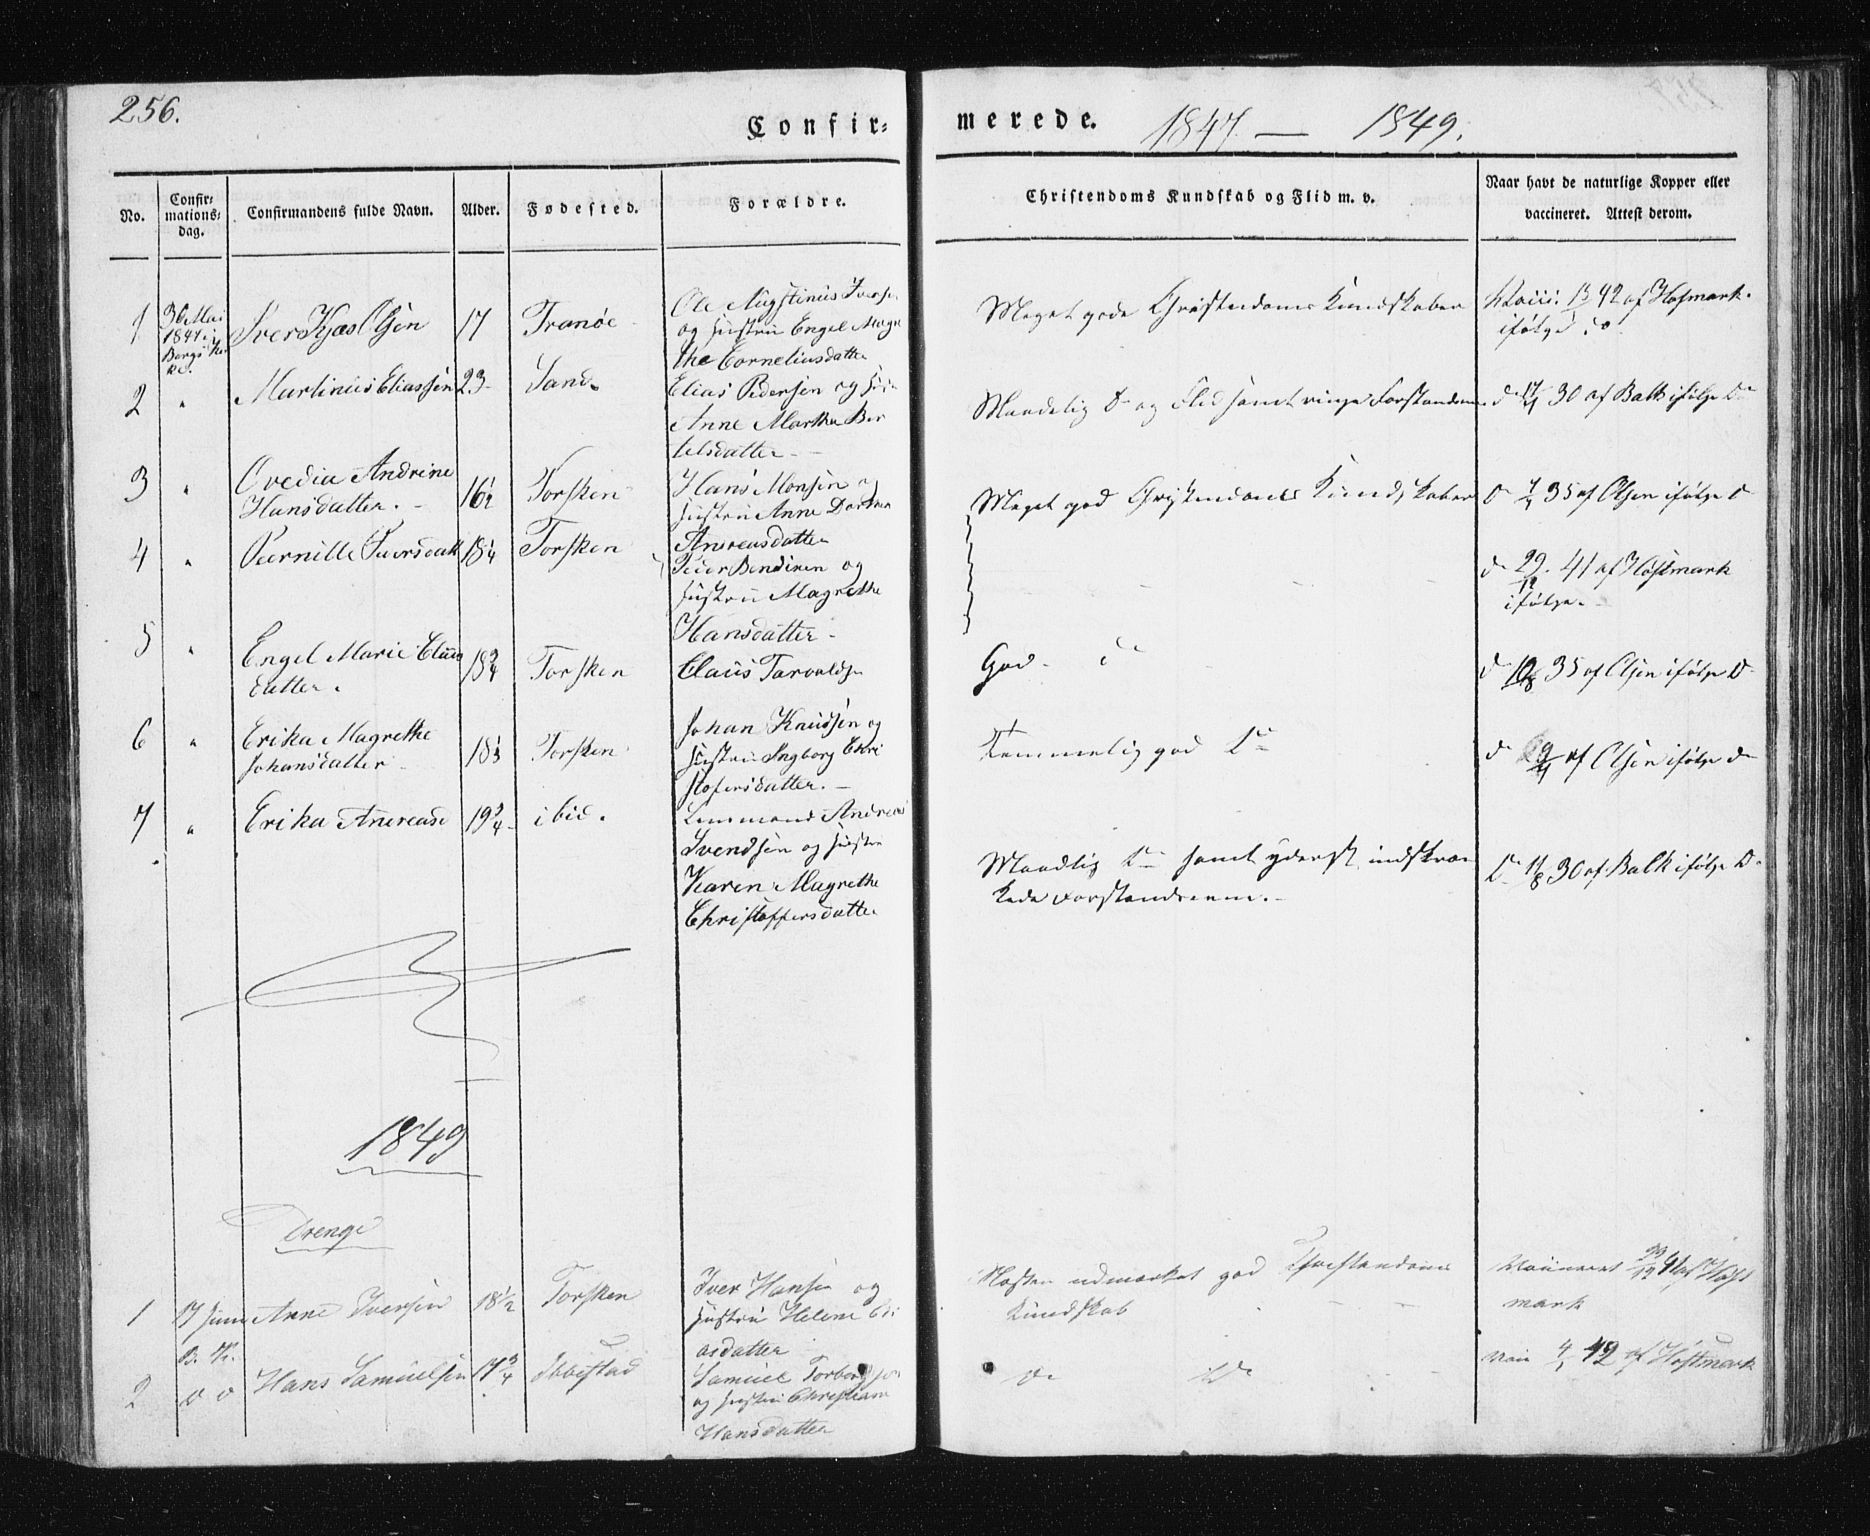 256.
Confir=
merede. 1847. — 1849.
No.
Confir=
mations=
dag.
Confirmandens fulde Navn.
Alder.
Fødested.
Forældre.
Christendoms Kundskab og Flid m. v.
Naar havt de naturlige Kopper eller
vaccineret. Attest derom.
1 Mai 1847 i Bergs Kir
Iver Olsen 17 Tranøe
Ole Iversen
og Hustru Engel Magre
the Corneliusdatter
Meget gode Christendoms Kundskaber
42 af Hosmark.
ifølge do
2 " Martinus Eliassen 23 Sand
Elias Pedersen og Hu
Anne Martha Ber
telsdatter
Maadelig do og Flid samt ringe Forstand
do 30 af Balk ifølge do
3 " Ovedia Andrine
Hansdatter. 16½ Torsken
Hans Monsen og
Hustru Anne Dorthea
Andreasdatter
Meget god Christendoms Kundskaber
do 35 af Olsen ifølge do
4 " Pernille 18¼ Torsken
Peder Bendixen og
Hustru Magrethe
Hansdatter
do 29/12. 41 af Høstmark
ifølge
5 " Engel Marie Claus
datter. 18¾ Torsken
Claus
God do
do 35 af Olsen ifølge do
6 " Erika Magrethe
Johansdatter 18 Torsken
Johan Knudsen og
Hustru Ingborg Chri
stofersdatter.
Temmelig god do
do af Olsen ifølge do
7 " Erika Andrease 19¾ ibid.
Andreas
Svendsen og Hustru
Karen Magrethe
Christoffersdatter
Maadlig do samt yderst indskræn
kede Forstandsevne.
do 11/8 30 af Balk ifølge do
1849
Drenge
1 17 Juni
B. K.
Anne Iversen 18½ Torsken
Iver Hansen og
Hustru Helene Eli
asdatter
Næsten udmærket god Christendoms
Kundskab
Vaccineret 29/12 41 af Høst
mark
2 do do Hans Samuelsen 17¾ Ibbestad
Samuel
og Hustru Christiane
Hansdatter
do do
Vacc 42 af Høstmark